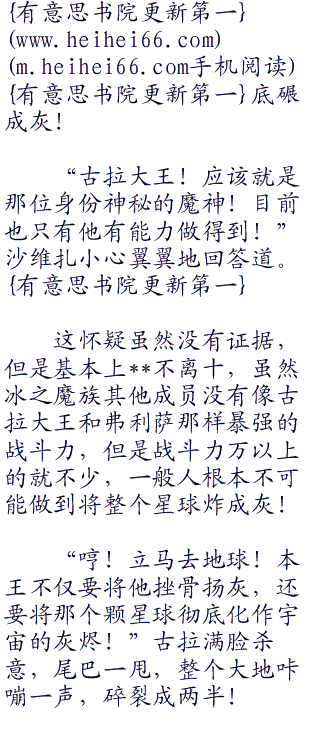 {有意思书院更新第一}
(www.heihei66.com)
(m.heihei66.com手机阅读)
{有意思书院更新第一}底碾
成灰！
“古拉大王！应该就是
那位身份神秘的魔神！目前
也只有他有能力做得到！”
沙维扎小心翼翼地回答道。
{有意思书院更新第一}
这怀疑虽然没有证据，
但是基本上**不离十，虽然
冰之魔族其他成员没有像古
拉大王和弗利萨那样暴强的
战斗力，但是战斗力万以上
的就不少，一般人根本不可
能做到将整个星球炸成灰！
“哼！立马去地球！本
王不仅要将他挫骨扬灰，还
要将那个颗星球彻底化作宇
宙的灰烬！”古拉满脸杀
意，尾巴一甩，整个大地咔
嘣一声，碎裂成两半！